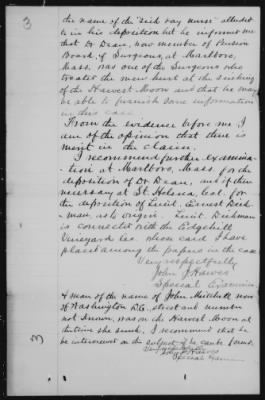 3
the name of the "sick bay nurse" alluded
to in his deposition but he informs me
that Dr Dean, now member of Pension
Board, of Surgeons, at Marlboro,
Mass. was one of the Surgeons who
treated the men hurt at the sinking
of the Harvest Moon and that he may
be able to furnish some information
in this case.
From the evidence before me I
am of the opinion that there is
merit in the claim.
I recommend further examina-
tion at Marlboro, Mass. for the
deposition of Dr Dean, and if then
necessary at St. Helena, Cal. for
the deposition of Lieut. Ernest Dick-
man, as to origin. Lieut. Dickman
is connected with the Edgehill
Vineyard Co. whose card I have
placed among the papers in the case
Very respectfully
John J Hawes
Special Examiner
A man of the name of John Mitchell now
of Washington D.C. street and number
not known, was on the Harvest Moon at
the time she sunk. I recommend that he
be interviewed on the subject if he can be found.
Very respectfully
John J Hawes
Special Examiner
3